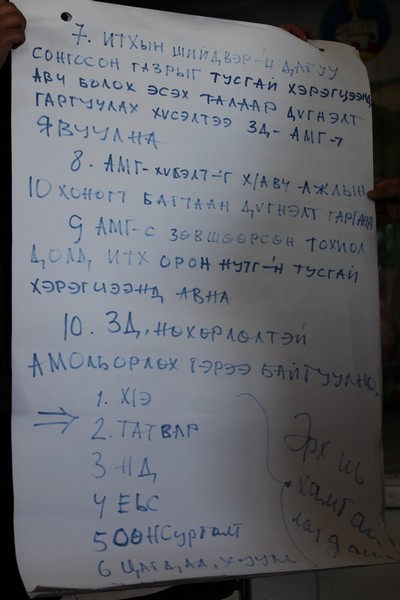 7. ИТХЫН ШИЙДВЭР-Н ДАГУУ
СОНГОСОН ГАЗРЫГ ТУСГАЙ ХЭРЭГЦЭЭНД
АВЧ БОЛОХ ЭСЭХ ТАЛААР ДҮГНЭЛТ
ГАРГУУЛАХ ХҮСЭЛТЭЭ ЗД- АМГ-т
ЯВУУЛНА
8. АМГ- Х/АВЧ АЖЛЫН
10 ХОНОГТ БАГТААН ДҮГНЭЛТ
9 АМГ-С ЗӨВШӨӨРСӨН ТОХИОЛ
ДОЛД ИТХ ОРОН НУТГ-Н ТУСГАЙ
ХЭРЭГЦЭЭНД АВНА
10. ЗД, НӨХӨРЛӨЛТЭЙ
ГЭРЭЭ БАЙГУУЛНА
1. ХІЭ
2. ТАТВАР
3 НД
4 ЕБС
5 ООНСургалт
6 ЦАГДАА,
Эрх нь